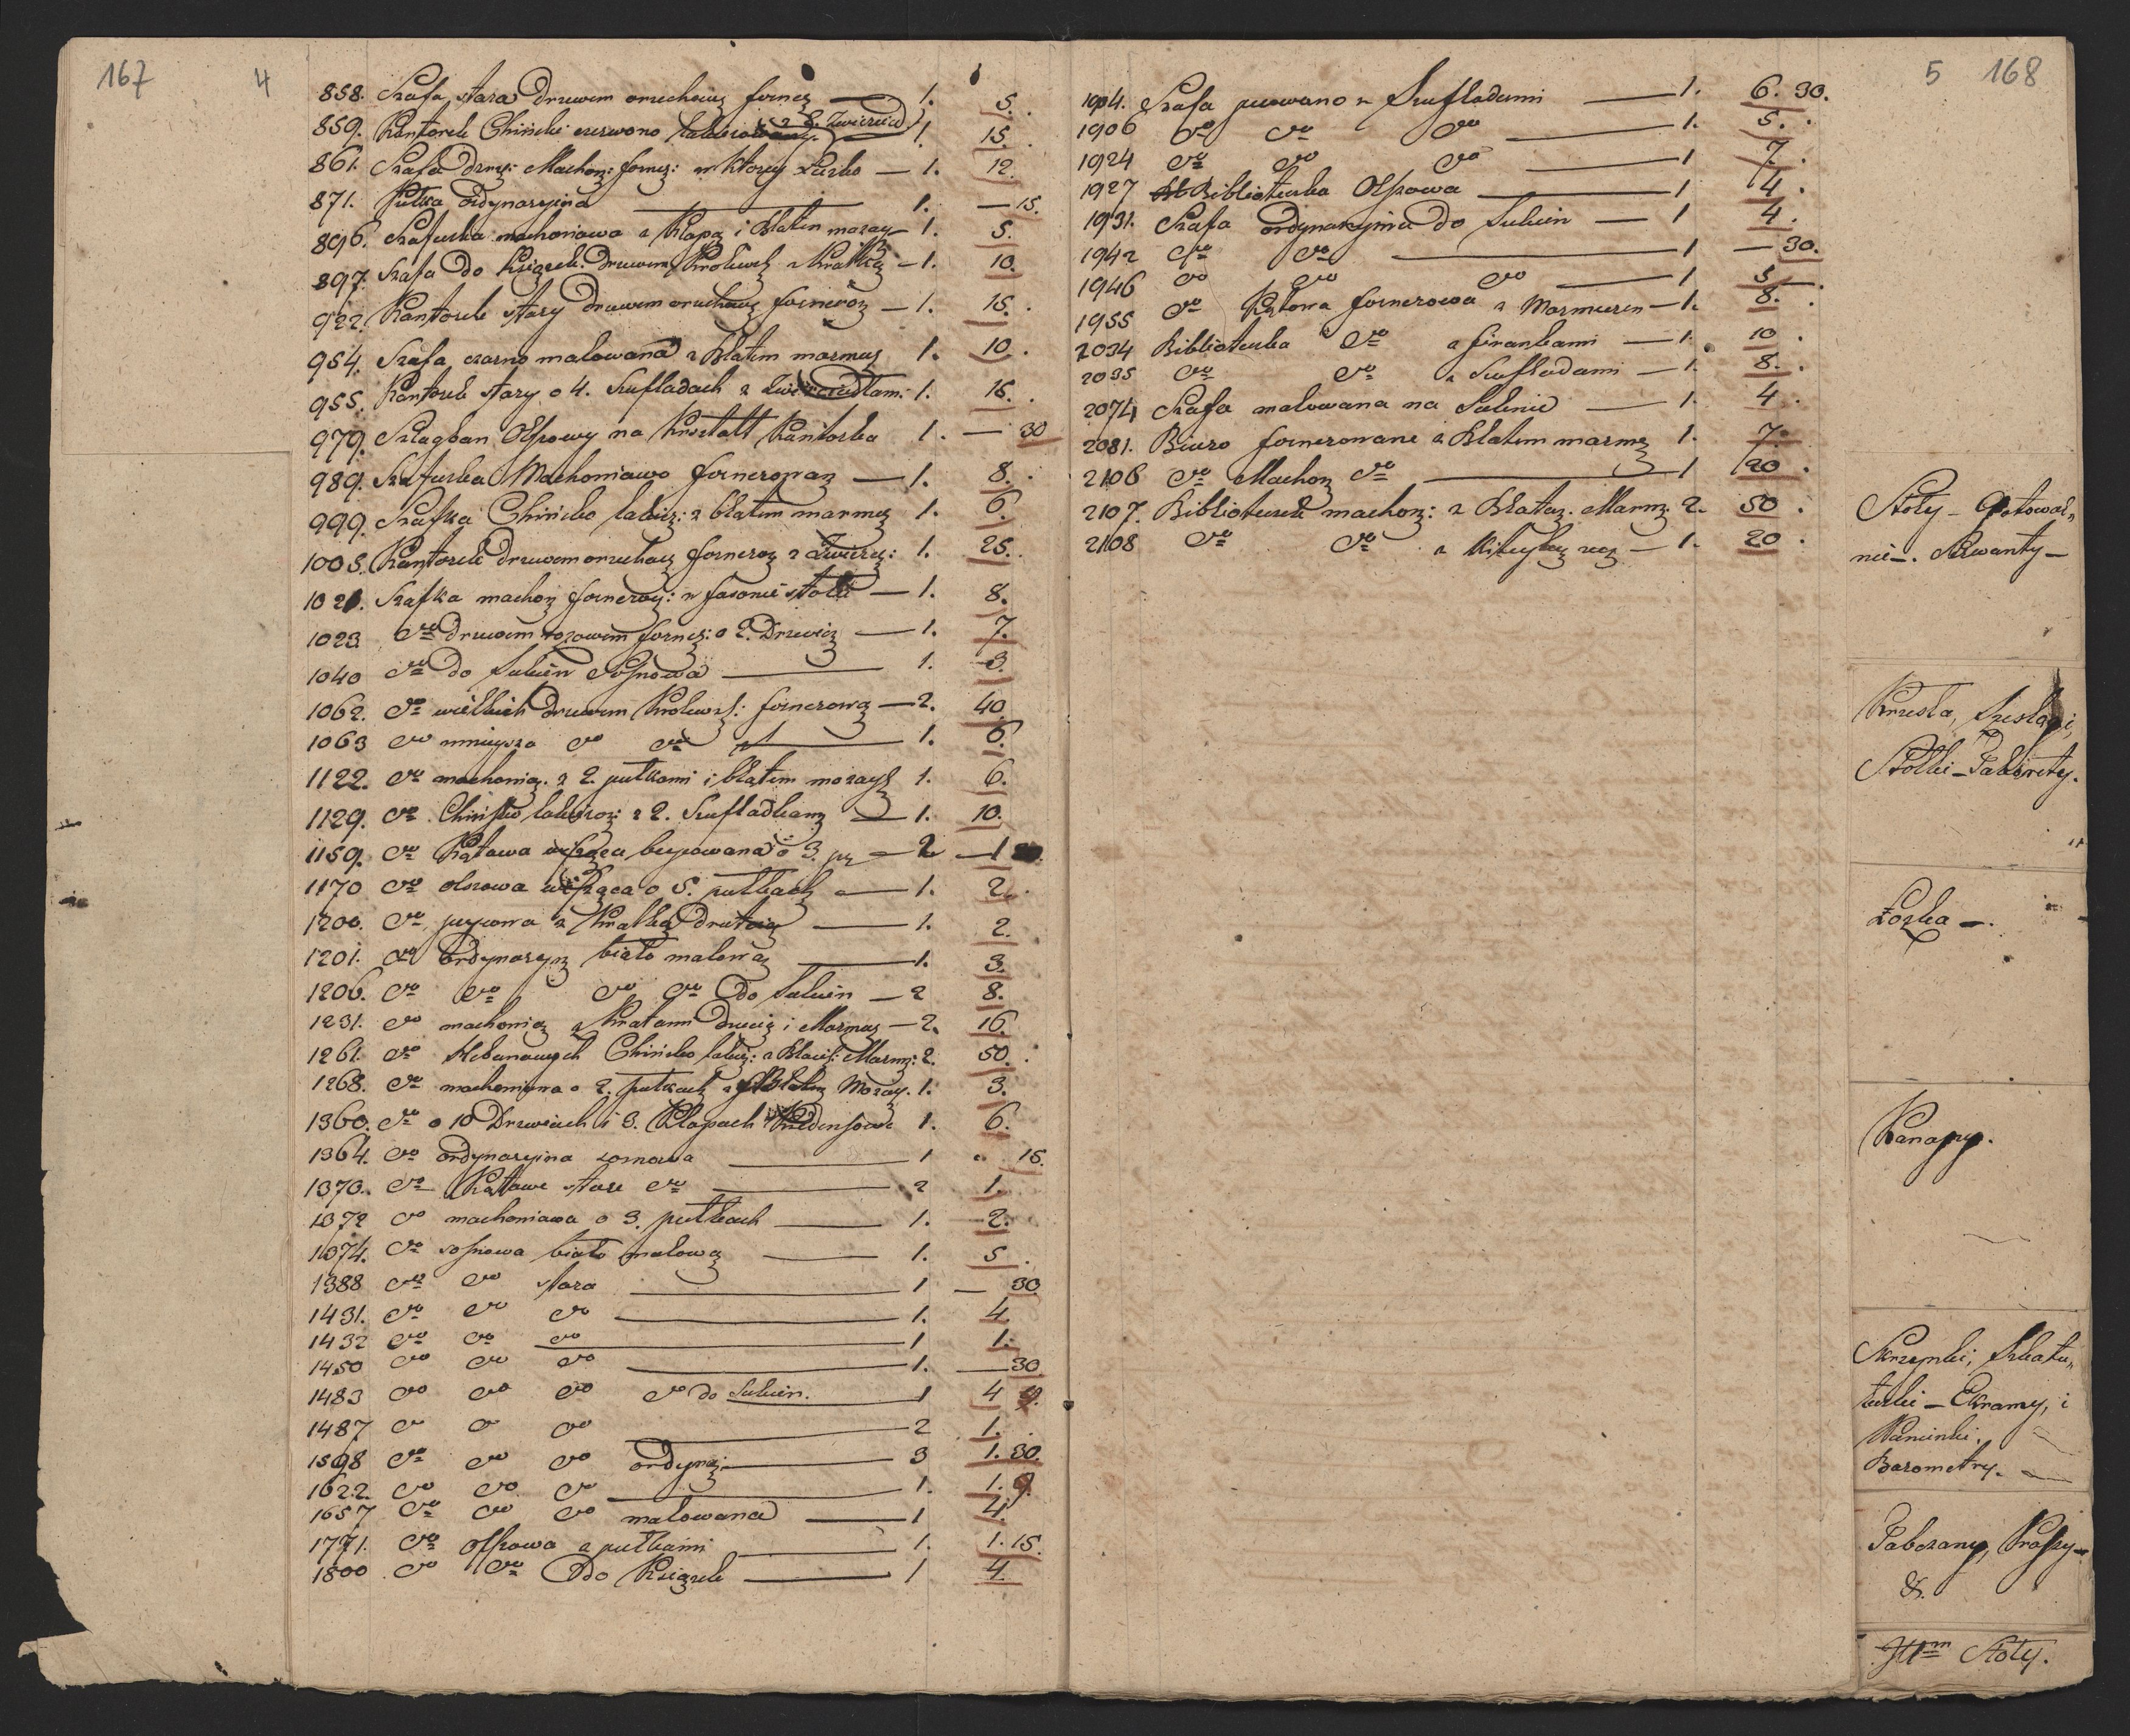 167 4
858. Szafa stara drzewem orzechowy forner — 1. 5.
859. Kantorek Chiński czerwono lakierowany z 2. Zwierciad 1. 15.
861. Szafa drze: Machon: forner: w ktorey Łuzko — 1. 12.
871. Pułka ordynaryina — 1. — 15.
896. Szafeczka machoniowa z Klapą i Blatem mozay — 1. 5.
897. Szafa do Książek drzewem Krolewsk z Kratką — 1. 10.
922. Kantorek stary drzewem orzechow forneroz — 1. 15.
954. Szafa czarno malowana z Blatem marmur 1. 10.
955. Kantorek stary o 4. Szufladach z Zwierciadłam: 1. 15.
979. Szlagban Olszowy na Kształt Kantorka 1. — 30
989. Szafeczka Machoniawo fornerowan — 1. 8.
999. Szafka Chińsko lakier: z blatem marmur 1. 6.
1005. Kantorek drzewem orzechow forneroz z Zwierc: 1. 25.
1021. Szafka machon forneroz: w fasonie stołu — 1. 8.
1023 dto drzewem rozowem forner: o 2. Drzwicz — 1. 7.
1040 dto do Sukien Sosnowa — 1. 3.
1062. dto wielkich drzewem Krolewsk: fornerowa — 2. 40.
1063 dto mnieysza dto dto — 1. 6.
1122. dto machonio. z 2. pułkami i blatem mozayk 1. 6.
1129. dto Chińsko lakieroz: z 2. Szufladkamy — 1. 10.
1159. dto Kątowa wisząca beycowana o 3. — 2 — 1
1170 dto olszowa wisząca o 5. pułkach — 1. 2.
1200. dto z Kratką drucią — 1. 2.
1201. dto Ordynaryin biało malowa — 1. 3.
1206. dto dto dto dto do Sukien — 2 8.
1231. dto machonio z Kratami Drucia i Marmur — 2. 16.
1261. dto Hebanowych Chińsko lakier: z Blacis: Marm: 2. 50.
1268. dto machoniowa o 2. pułkach z Blatem Mozay. 1. 3.
1360. dto o 10 Drzwiach i 3. Klapach Kredensowa 1. 6.
1364. dto ordynaryina sosnowa — 1 15.
1370. dto Kątowe stare dto — 2 1.
1372 dto machoniowa o 3. pułkach — 1. 2.
1374. dto sosnowa biało malowa — 1. 5.
1388 dto dto stara — 1 — 30
1431. dto dto dto — 1. 4.
1432 dto dto dto — 1 1.
1450 dto dto dto — 1. — 30
1483 dto dto dto dto do Sukien. 1 4
1487 dto dto dto — 2 1.
1598 dto dto dto ordynar: — 3 1. 30.
1622. dto dto dto — 1. 1.
1657 dto dto dto malowana — 1 4.
1771. dto olszowa z pułkami — 1. 1. 15.
1800 dto dto Do Książek — 1 4.
5 168
1904. Szafa z Szufladami — 1. 6. 30.
1906 dto dto dto — 1. 5.
1924 dto dto dto — 1 7.
1927 Biblioteczka Olszowa — 1 4.
1931. Szafa ordynaryina do Sukien — 1 4.
1942 dto dto — 1 — 30.
1946 dto dto dto — 1 5.
1955 dto Kątowa fornerowa z Marmurem — 1. 8.
2034 Biblioteczka dto z firankami — 1. 10.
2035 dto dto z Szufladami — 1. 8.
2074 Szafa malowana na Suknie — 1. 4.
2081. Biuro fornerowane z Blatem marm 1. 7.
2106 dto Machon dto — 1 20.
2107. Biblioteczek machon: z Blatam. Marm: 2. 50.
2108 dto dto z — 1. 20.
Stoły - Gotowal„
nie -. Serwanty -
Krzesła, Szeslągi,
Stołki - Taborety.
Łozka -.
Kanapy.
Skrzynki, Szkatu„
łeczki - Ekramy, i
Kaminki.
Barometry.
Tabczany, Prassy -
&.
Stoły.